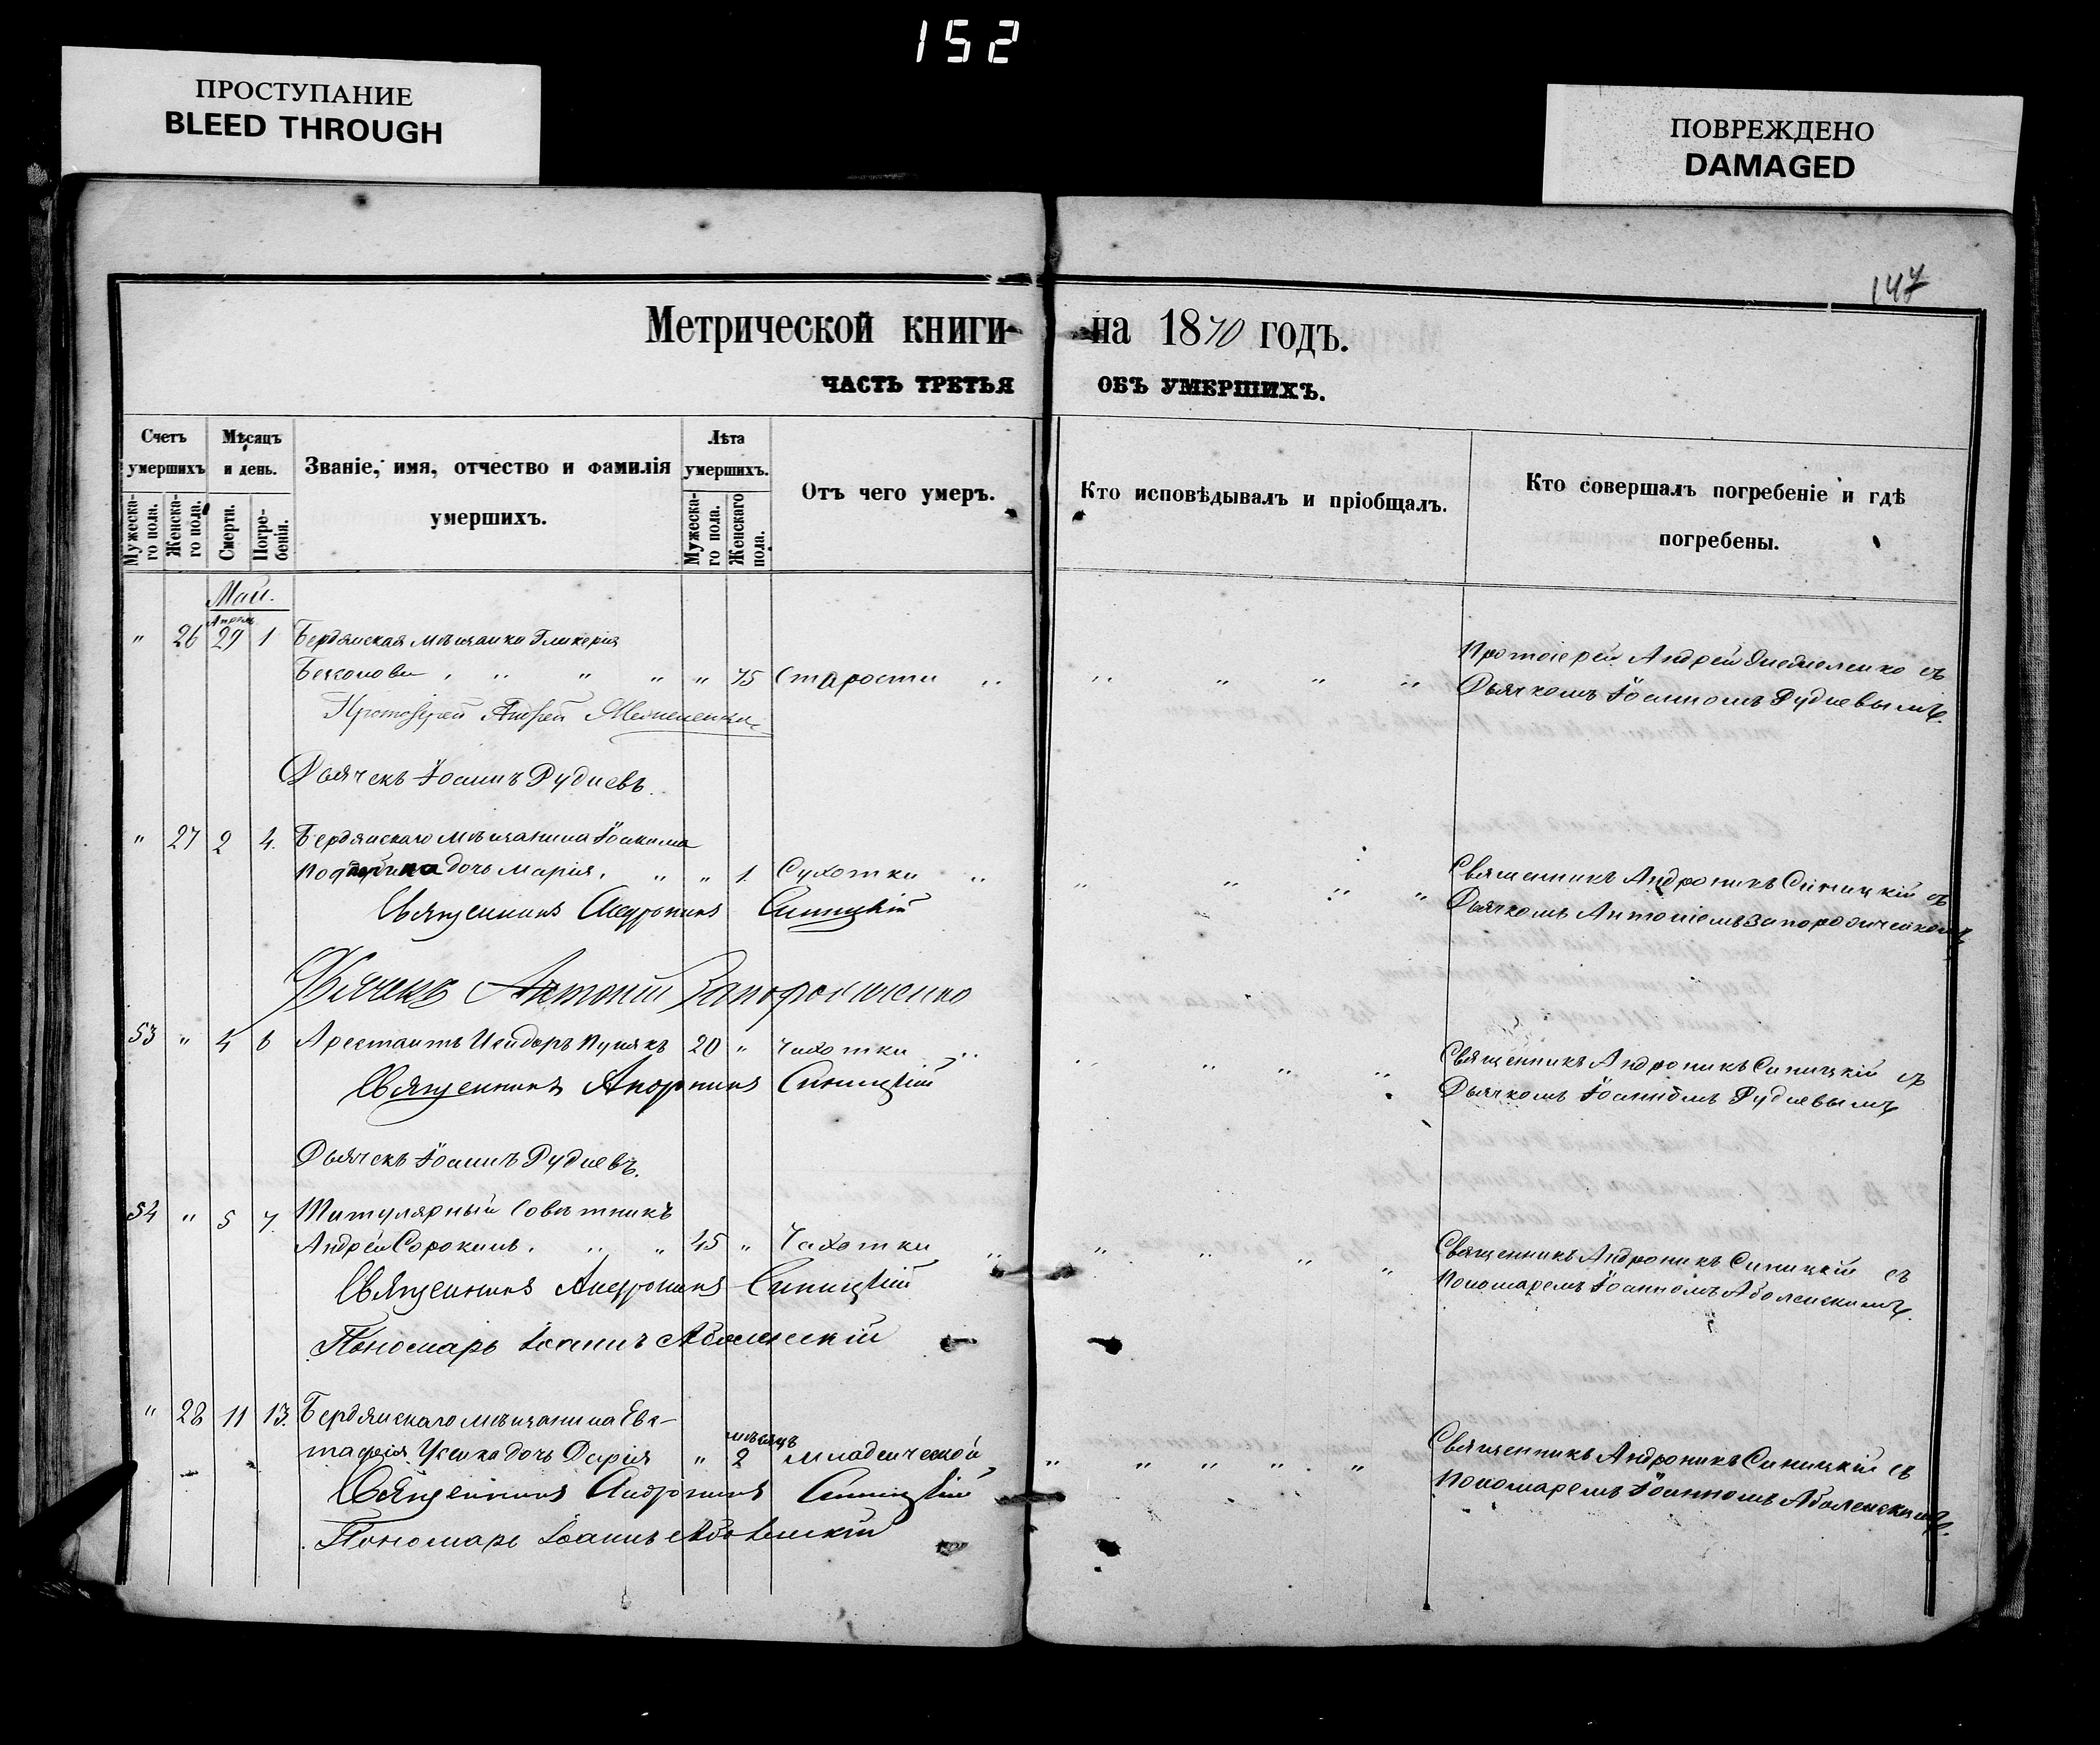 152
ПРОСТУПАНИЕ
BLEED THROUGH
ПОВРЕЖДЕНО
DAMAGED
147
Метрической книги на 1870 годъ.
ЧАСТЬ ТРЕТЬЯ ОБЪ УМЕРШИХЪ.
Счетъ умершихъ
Мужеска-го пола.
Женска-го пола.
Мѣсяцъ и день.
Смерти.
Погре-бенія.
Званіе, имя, отчество и фамилія умершихъ.
Лѣта умершихъ.
Мужеска-го пола.
Женскаго пола.
Отъ чего умеръ.
Кто исповѣдывалъ и пріобщалъ.
Кто совершалъ погребеніе и гдѣ погребены.
Май.
Апрель
" 26 29 1 Бердянская мѣщанка Гликерія
" " " " 75 Старости " " " " "
Протоіерей Андрей съ
Дьячкомъ Іоанномъ Рудневымъ.
Протоіерей Андрей
Дьячекъ Іоаннъ Рудневъ.
" 27 2 4. Бердянскаго мѣщанина Іоакима
дочь Марія. " " 1. Сухотки " " " " "
Священникъ Андроникъ Синицкій съ
Дьячкомъ Антоніемъ Запорожченкомъ
Священникъ Андроникъ Синицкій
Дьячекъ Антоній Запорожченко
53 " 4 6 Арестантъ Исидоръ 20 " Чахотки " " " " "
Священникъ Андроникъ Синицкій съ
Дьячкомъ Іоанномъ Рудневымъ
Священникъ Андроникъ Синицкій
Дьячекъ Іоаннъ Рудневъ.
54 " 5 7. Титулярный Совѣтникъ
Андрей Сорокинъ. " " 45 " Чахотки " " " " "
Священникъ Андроникъ Синицкій съ
Пономаремъ Іоанномъ Аболенскимъ.
Священникъ Андроникъ Синицкій
Пономарь Іоаннъ Аболенскій
" 28 11 13. Бердянскаго мѣщанина Евс-
тафія Усика дочь Дарія " мѣсяцъ 2 младенческой " " " " "
Священникъ Андроникъ Синицкій съ
Пономаремъ Іоанномъ Аболенскимъ.
Священникъ Андроникъ Синицкій
Пономарь Іоаннъ Аболенскій